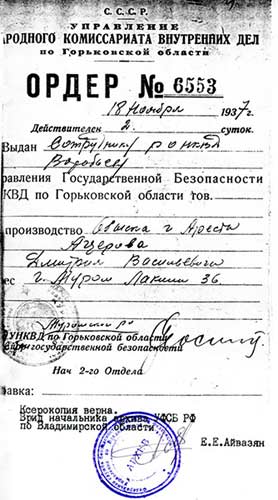 С. С. С. Р.
УПРАВЛЕНИЕ
АРОДНОГО КОМИССАРИАТА ВНУТРЕННИХ ДЕЛ
по Горьковской области
ОРДЕР № 6553
18 Ноября 1937 г.
Действителен 2 суток.
Выдан Сотруднику
равления Государственной Безопасности
КВД по Горьковской области тов.
производство Обыска и Ареста
Дмитрия Васильевича
ес г. Муром Лакина 36.
УНКВД по Горьковской области
государственной безопасности
Нач 2-го Отдела
равка:
Ксерокопия верна.
Врид начальника архива УФСБ РФ
по Владимирской области
Е.Е.Айвазян
АРХИВ